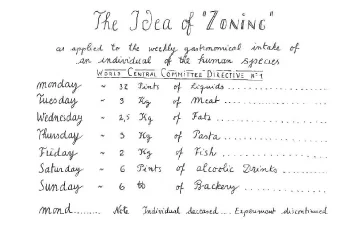 The Idea of "Zoning"
as applied to the weekly gastronomical intake of
an individual of the human species
WORLD CENTRAL COMMITTEE DIRECTIVE Nº1
Monday ~ 32 Pints of Liquids ....................
Tuesday ~ 3 Kg of Meat ....................
Wednesday ~ 2,5 Kg of Fats ....................
Thursday ~ 3 Kg of Pasta ....................
Friday ~ 2 Kg of Fish ....................
Saturday ~ 6 Pints of alcoolic Drinks ............
Sunday ~ 6 lb of Backery ....................
Mond......... Note Individual deceased.... Experiment discontinued